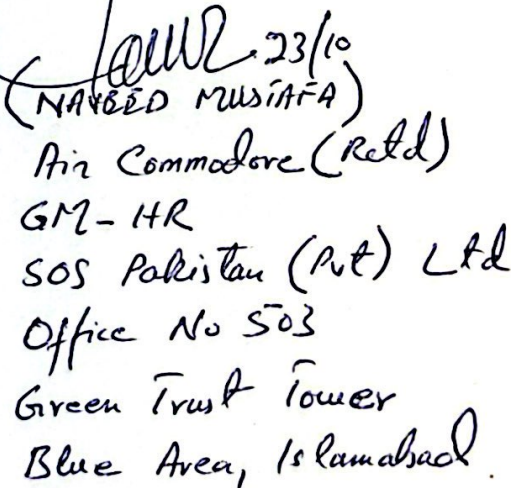 23/10
(NAVEED MUSTAFA)
Air Commodore (Retd)
GM-HR
SOS Pakistan (Pvt) Ltd
Office No 503
Green Trust Tower
Blue Area, Islamabad.